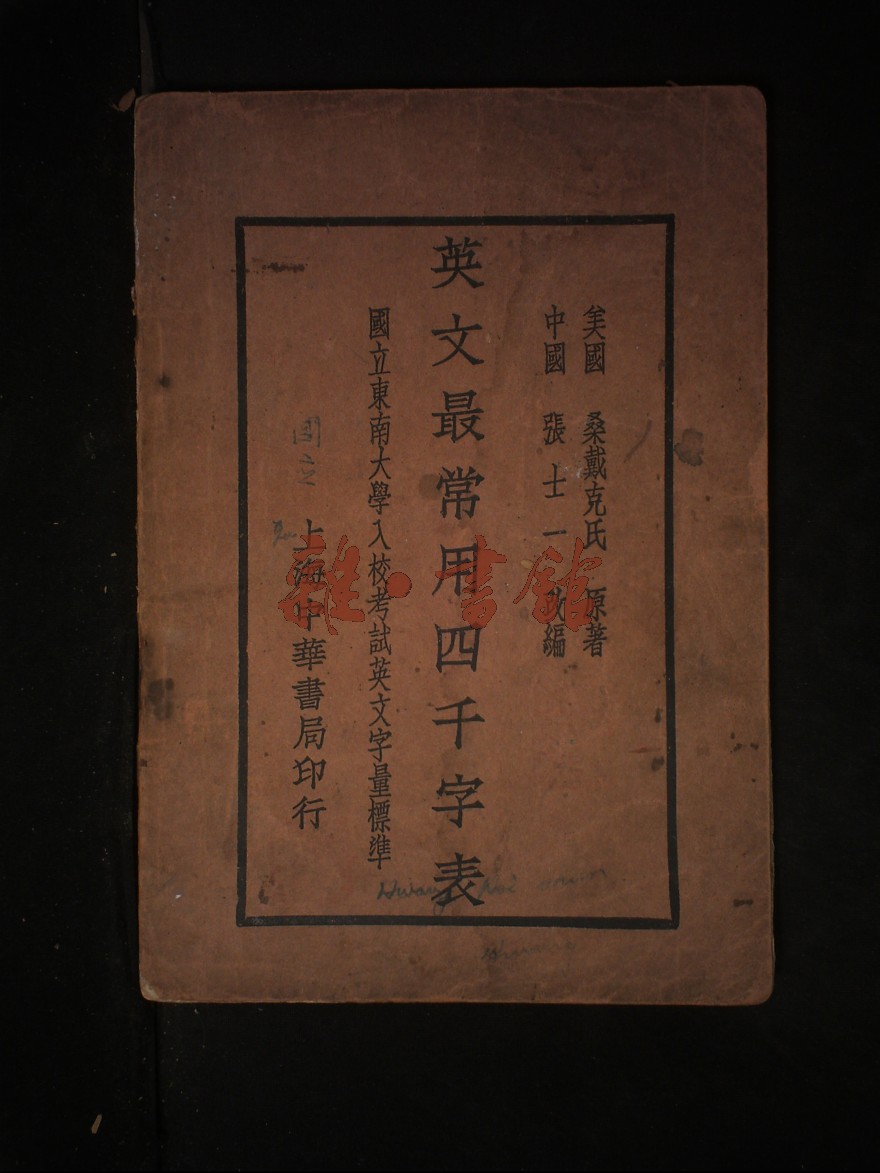 美國 桑戴克氏 原著
中國 張士一 改編
英文最常用四千字表
國立東南大學入校考試英文字量標準
上海中華書局印行
國立
Hwang
雜·書館